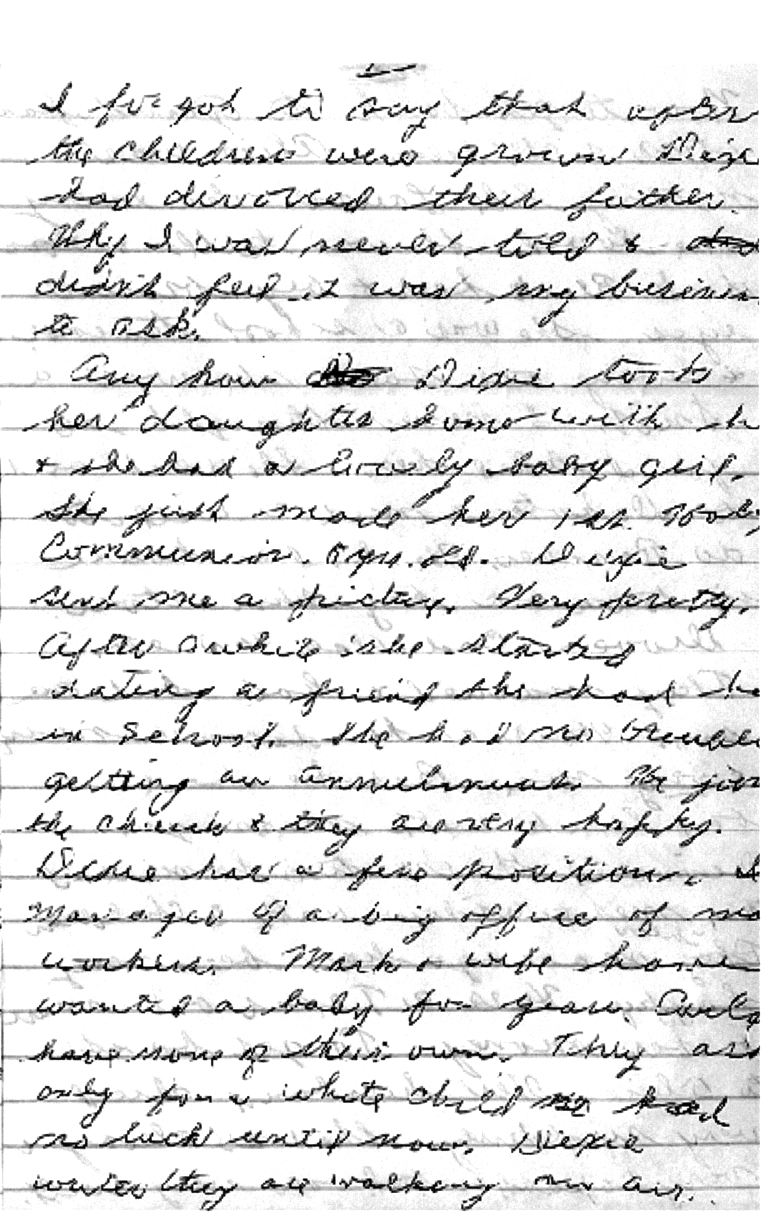 I forgot to say that after
the children were grown Dixie
had divorced their father.
Why I was never told &
didn't feel it was my business
to ask.
Any how Dixie took
her daughter home with h
& she had a lovely baby girl.
She just made her 1st Holy
Communion. 8 yrs. old. Dixie
sent me a picture. Very pretty.
After a while she started
dating a friend she had
in School. She had no trouble
getting an annulment. He join
the church & they are very happy.
Dixie has a fine position.
Manager of a big office of
workers. Mark & wife have
wanted a baby for years.
have none of their own. They
only for a white child had
no luck until now. Dixie
writes they are walking on air.